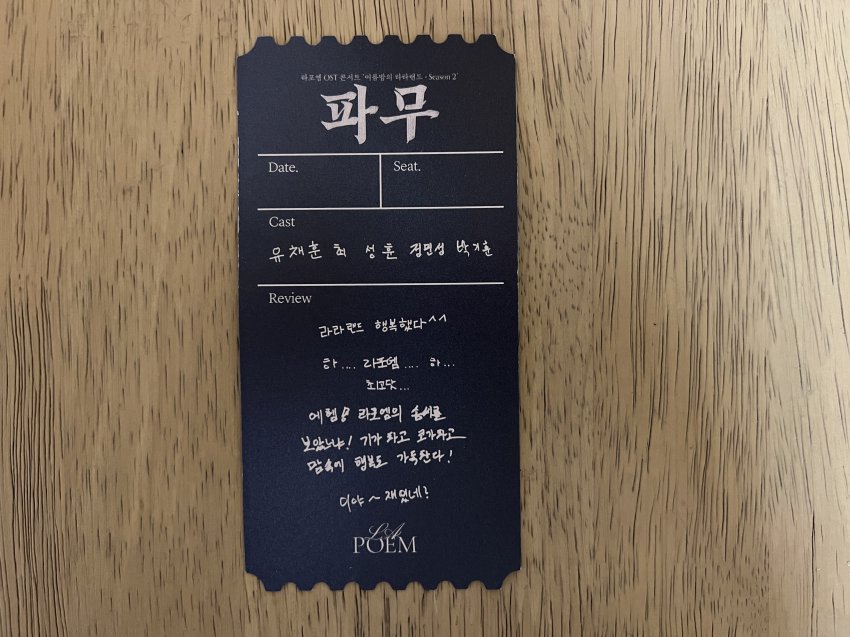 라포엠 OST 콘서트 '여름밤의 라라랜드 - Season 2'
파무
Date.
Seat.
Cast
유채훈 최성훈 정민성 박기훈
Review
라라랜드 행복했다^^
하.... 라포엠.... 하...
최고닷...
에헴 라포엠의 솜씨를
보았느냐! 기가 차고 코가차고
맘속에 행복도 가득찬다!
이야~ 재밌네?
LA
POEM